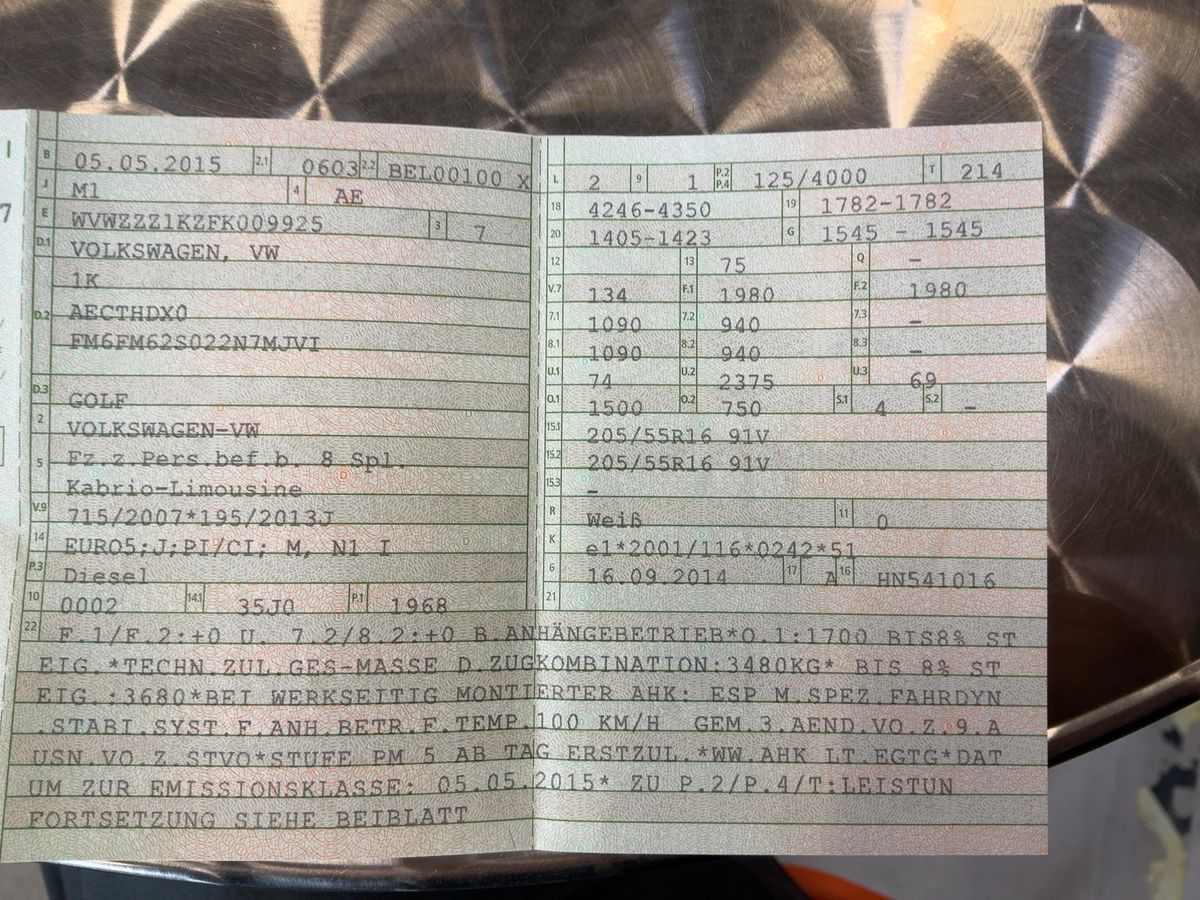 B 05.05.2015 2.1 0603 2.2 BEL00100 X
J M1 4 AE
E WVWZZZ1KZFK009925 3 7
D.1 VOLKSWAGEN, VW
1K
D.2 AECTHDX0
FM6FM62S022N7MJVI
D.3 GOLF
2 VOLKSWAGEN-VW
5 Fz.z.Pers.bef.b. 8 Spl.
Kabrio-Limousine
V.9 715/2007*195/2013J
14 EURO5;J;PI/CI; M, N1 I
P.3 Diesel
10 0002 14.1 35J0 P.1 1968
L 2 9 1 P.2 P.4 125/4000 T 214
18 4246-4350 19 1782-1782
20 1405-1423 G 1545 - 1545
12 13 75 Q -
V.7 134 F.1 1980 F.2 1980
7.1 1090 7.2 940 7.3 -
8.1 1090 8.2 940 8.3 -
U.1 74 U.2 2375 U.3 69
O.1 1500 O.2 750 S.1 4 S.2 -
15.1 205/55R16 91V
15.2 205/55R16 91V
15.3 -
R Weiß 11 0
K e1*2001/116*0242*51
6 16.09.2014 17 A 16 HN541016
21
22 F.1/F.2:+0 U. 7.2/8.2:+0 B.ANHÄNGEBETRIEB*O.1:1700 BIS8% ST
EIG.*TECHN.ZUL.GES-MASSE D.ZUGKOMBINATION:3480KG* BIS 8% ST
EIG.:3680*BEI WERKSEITIG MONTIERTER AHK: ESP M.SPEZ.FAHRDYN
.STABI.SYST.F.ANH.BETR.F.TEMP.100 KM/H GEM.3.AEND.VO.Z.9.A
USN.VO.Z.STVO*STUFE PM 5 AB TAG ERSTZUL.*WW.AHK LT.EGTG*DAT
UM ZUR EMISSIONSKLASSE: 05.05.2015* ZU P.2/P.4/T:LEISTUN
FORTSETZUNG SIEHE BEIBLATT